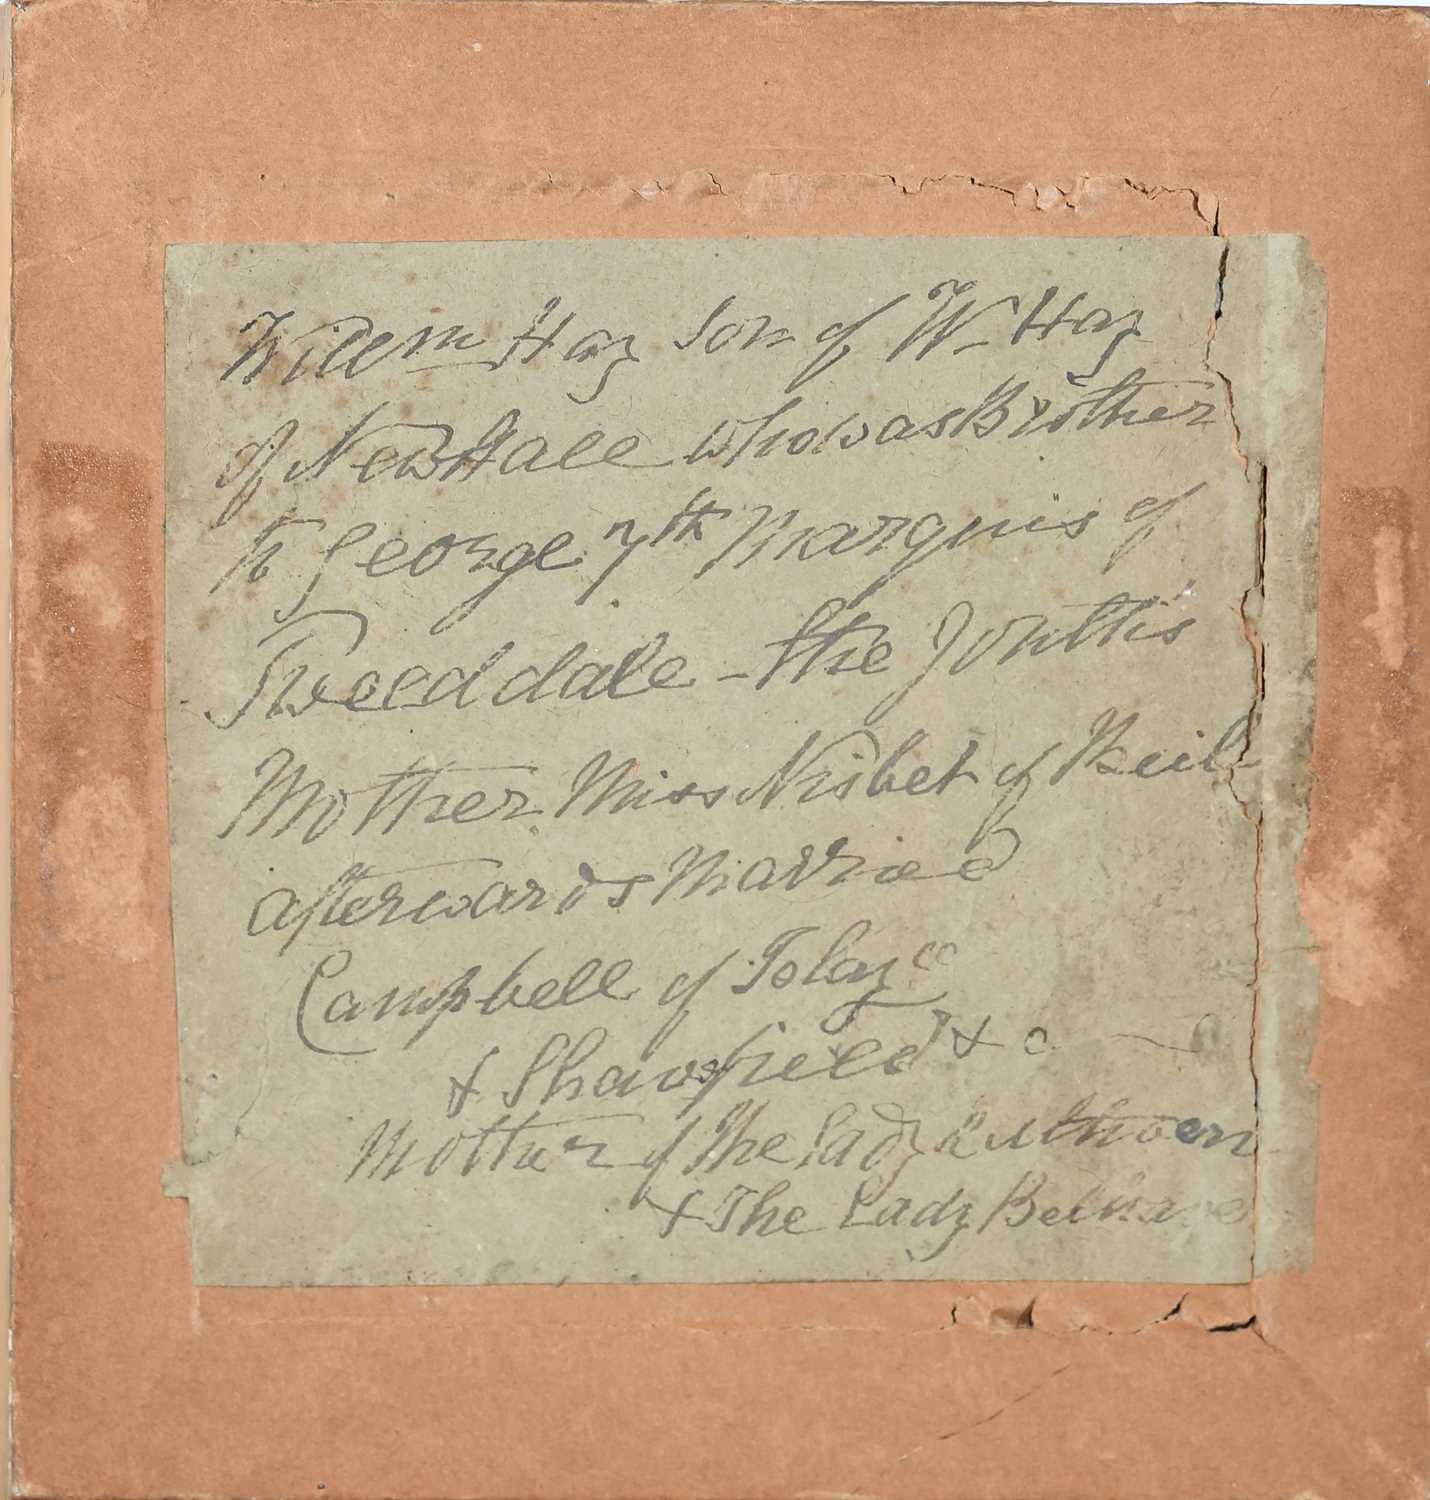 Willm Hay Son of Wm Hay
of NewHall who was Brother
to George 7th Marquis of
Tweeddale - the Youth's
Mother Miss Nisbet of
afterwards Married
Campbell of Islay
& Shawsfield & c
Mother of The Lady Ruthven
& The Lady